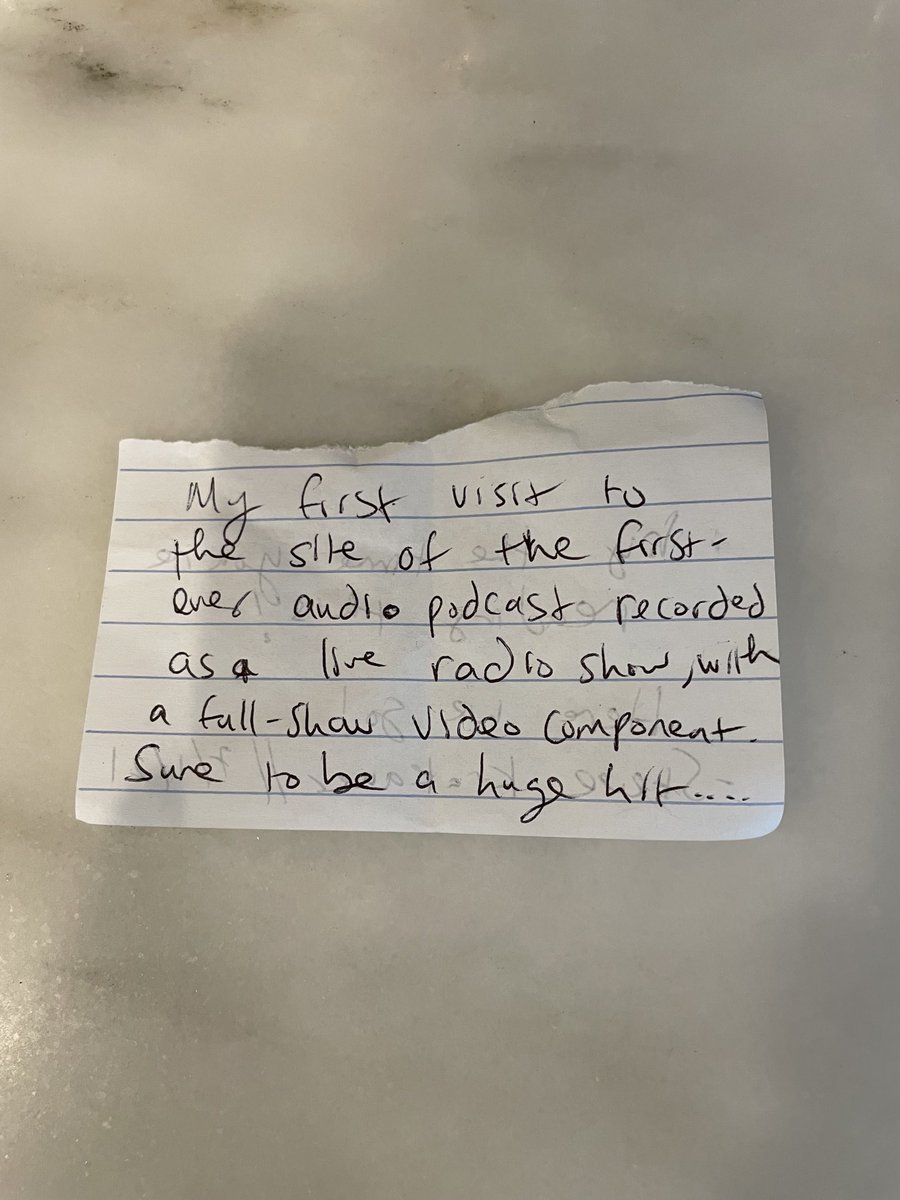 My first visit to
the site of the first-
ever audio podcast recorded
as a live radio show, with
a full-show video component.
Sure to be a huge hit....